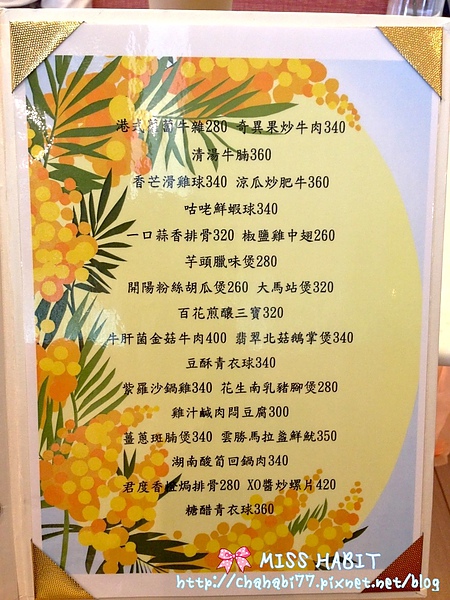 港式蘿蔔牛雜280 奇異果炒牛肉340
清湯牛腩360
香芒滑雞球340 涼瓜炒肥牛360
咕咾鮮蝦球340
一口蒜香排骨320 椒鹽雞中翅260
芋頭臘味煲280
開陽粉絲胡瓜煲260 大馬站煲320
百花煎釀三寶320
牛肝菌金菇牛肉400 翡翠北菇鵝掌煲340
豆酥青衣球340
紫羅沙鍋雞340 花生南乳豬腳煲280
雞汁鹹肉悶豆腐300
薑蔥斑腩煲340 雲勝馬拉盞鮮魷350
湖南酸筍回鍋肉340
君度香橙焗排骨280 XO醬炒螺片420
糖醋青衣球360
MISS HABIT
http://chahabi77.pixnet.net/blog